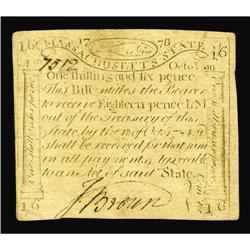 16 17 78 16
MASSACHUSETTS STATE
7512 Octo 18
One shilling and six pence
This Bill entitles the Bearer
to receive Eighteen pence LM
out of the Treasury of this
State, by the Octo
shall be received for that sum
in all payments, agreeable
to an Act of said State
J Brown
16 16